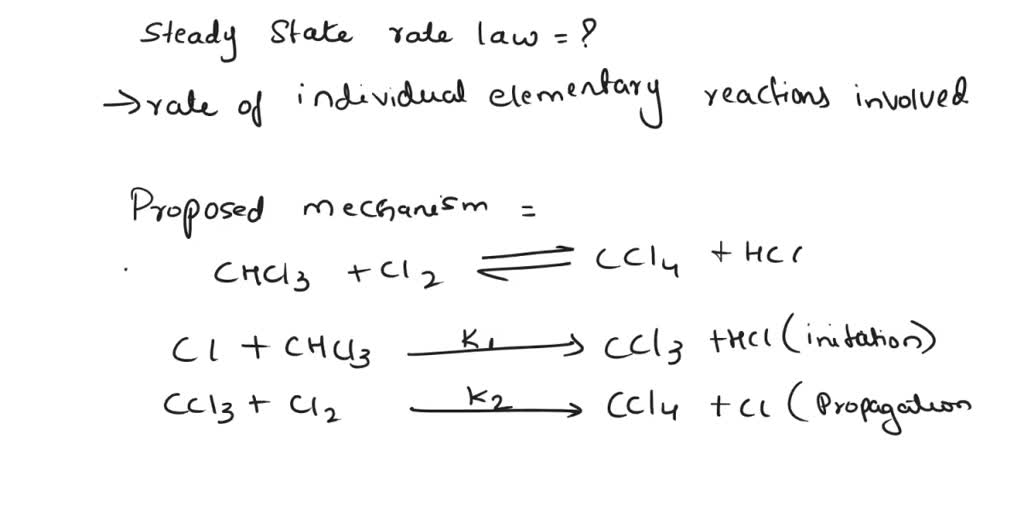 Steady State rate law = ?
→ rate of individual elementary reactions involved
Proposed mechanism =
CHCl3 + Cl2 ⇌ CCl4 + HCl
Cl + CHCl3 —K1→ CCl3 + HCl (initation)
CCl3 + Cl2 —K2→ CCl4 + Cl (Propagation